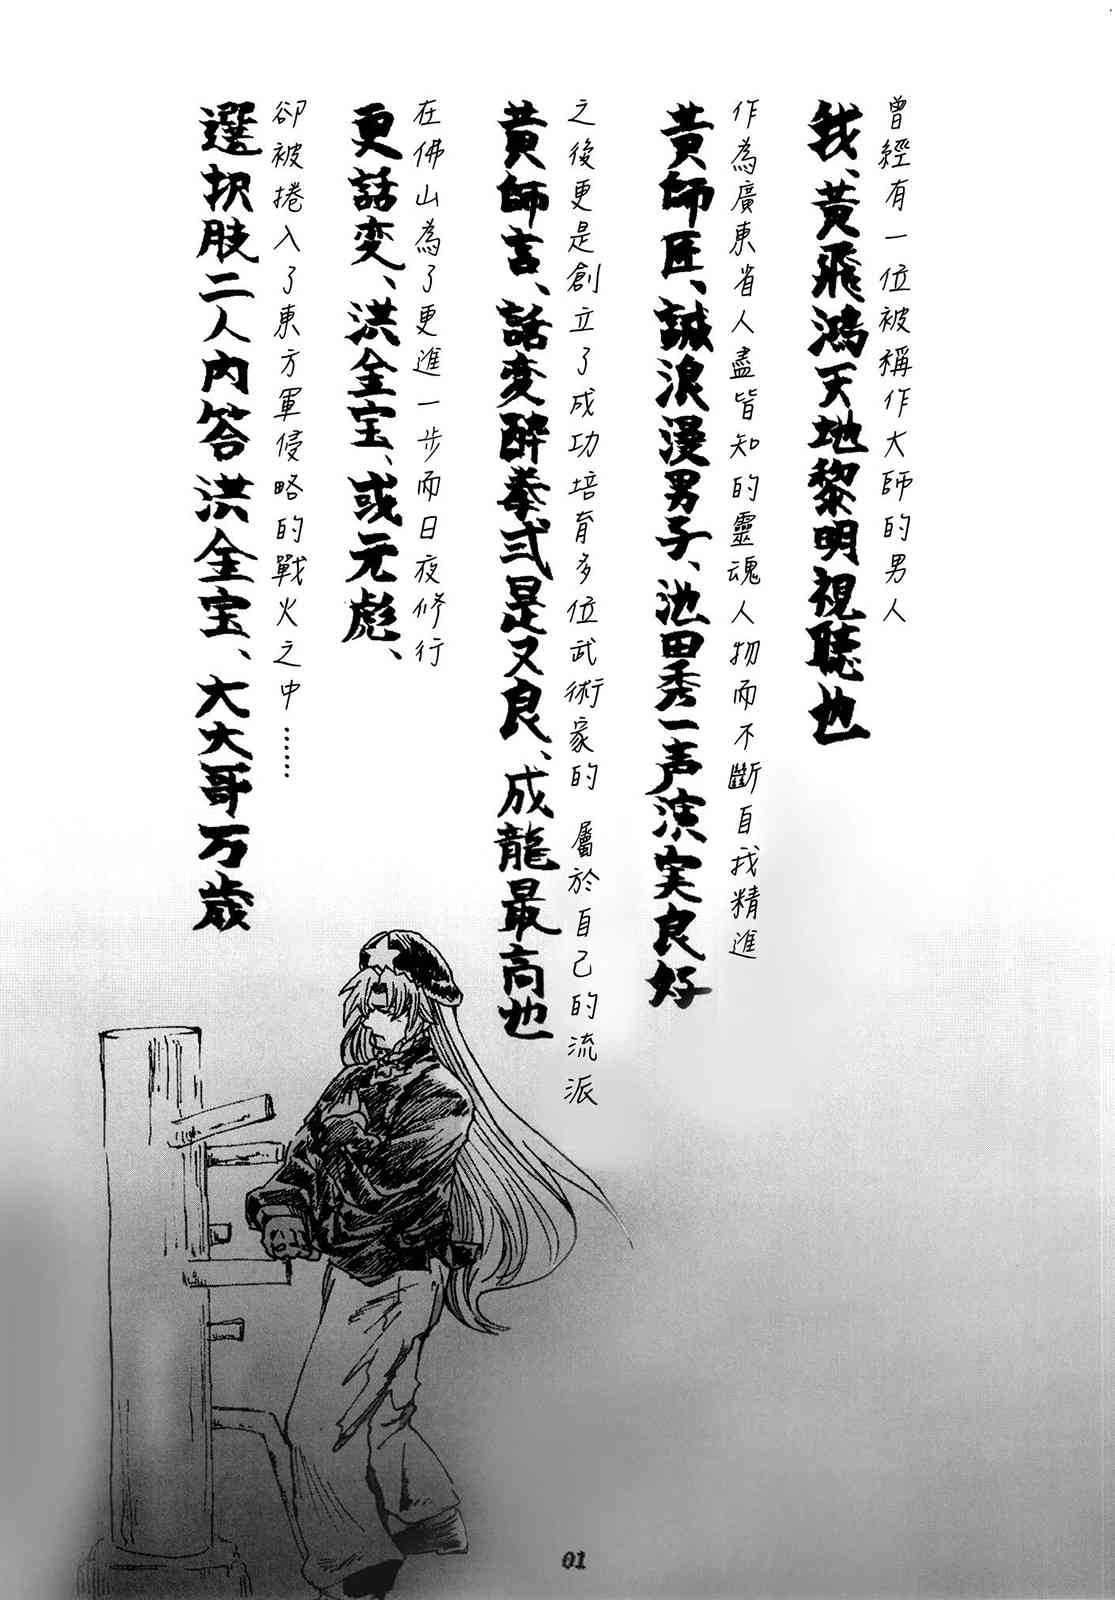 曾經有一位被稱作大師的男人
我、黃飛鴻天地黎明視聴也
作為廣東省人盡皆知的靈魂人物而不斷自我精進
黃師匠、誠浪漫男子、池田秀一声演实良好
之後更是創立了成功培育多位武術家的 屬於自己的流派
黃師言、話变酔拳弐是又良、成龍最高也
在佛山為了更進一步而日夜修行
更話变、洪金宝、或元彪、
卻被捲入了東方軍侵略的戰火之中……
選択肢二人内答洪金宝、大大哥万歳
01